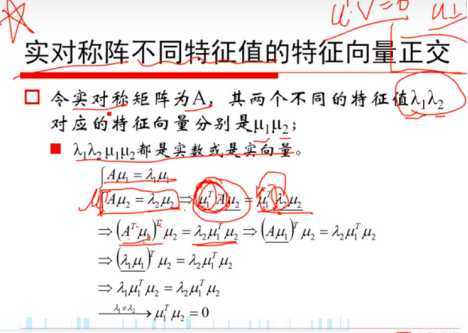 u^T·V=0 u⊥
实对称阵不同特征值的特征向量正交
令实对称矩阵为A，其两个不同的特征值λ₁λ₂
对应的特征向量分别是μ₁μ₂；
λ₁λ₂μ₁μ₂都是实数或是实向量。
{Aμ₁ = λ₁μ₁
Aμ₂ = λ₂μ₂ ⇒ μ₁ᵀAμ₂ = μ₁ᵀλ₂μ₂
⇒ (Aᵀμ₁)ᵀμ₂ = λ₂μ₁ᵀμ₂ ⇒ (Aμ₁)ᵀμ₂ = λ₂μ₁ᵀμ₂
⇒ (λ₁μ₁)ᵀμ₂ = λ₂μ₁ᵀμ₂
⇒ λ₁μ₁ᵀμ₂ = λ₂μ₁ᵀμ₂
λ₁≠λ₂ → μ₁ᵀμ₂ = 0